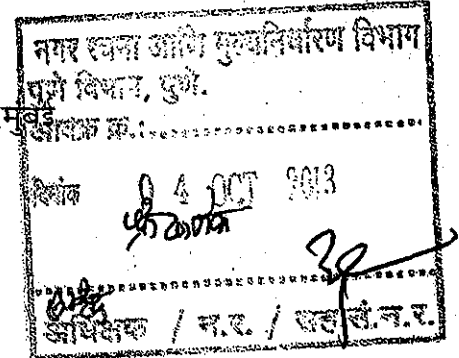 नगर रचना आणि मुल्यनिर्धारण विभाग
पुणे विभाग, पुणे.
मुंबई
आवक क्र.:
दिनांक 04 OCT 2013
अधिक्षक / न.र. / सह सं.न.र.